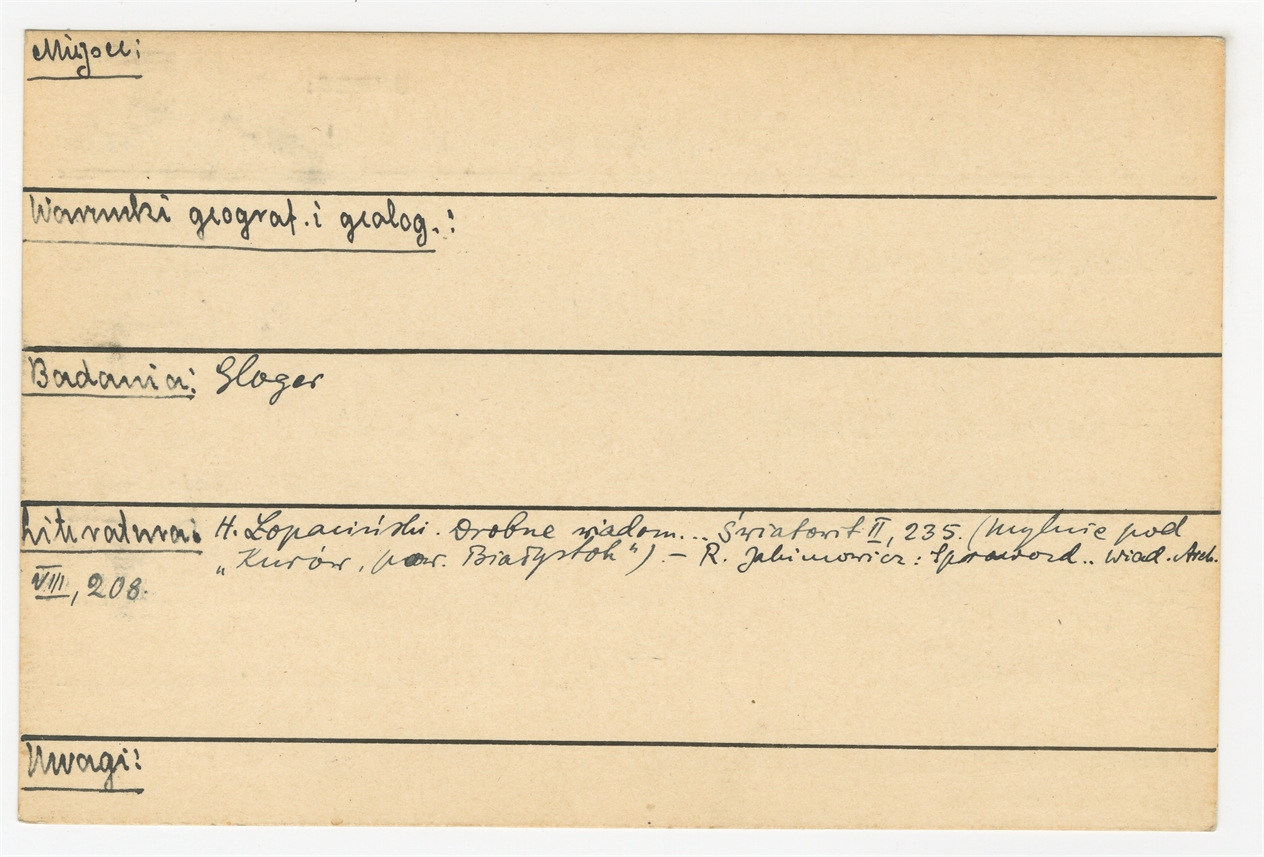 Miejsce:
Warunki geograf. i geolog.:
Badania: Gloger
Literatura: H. Łopaciński. Drobne wiadom... Światowit II, 235. (mylnie pod
„Kurów, pow. Białystok") – R. Jakimowicz: Sprawozd.. Wiad. Arch.
VIII, 208.
Uwagi: